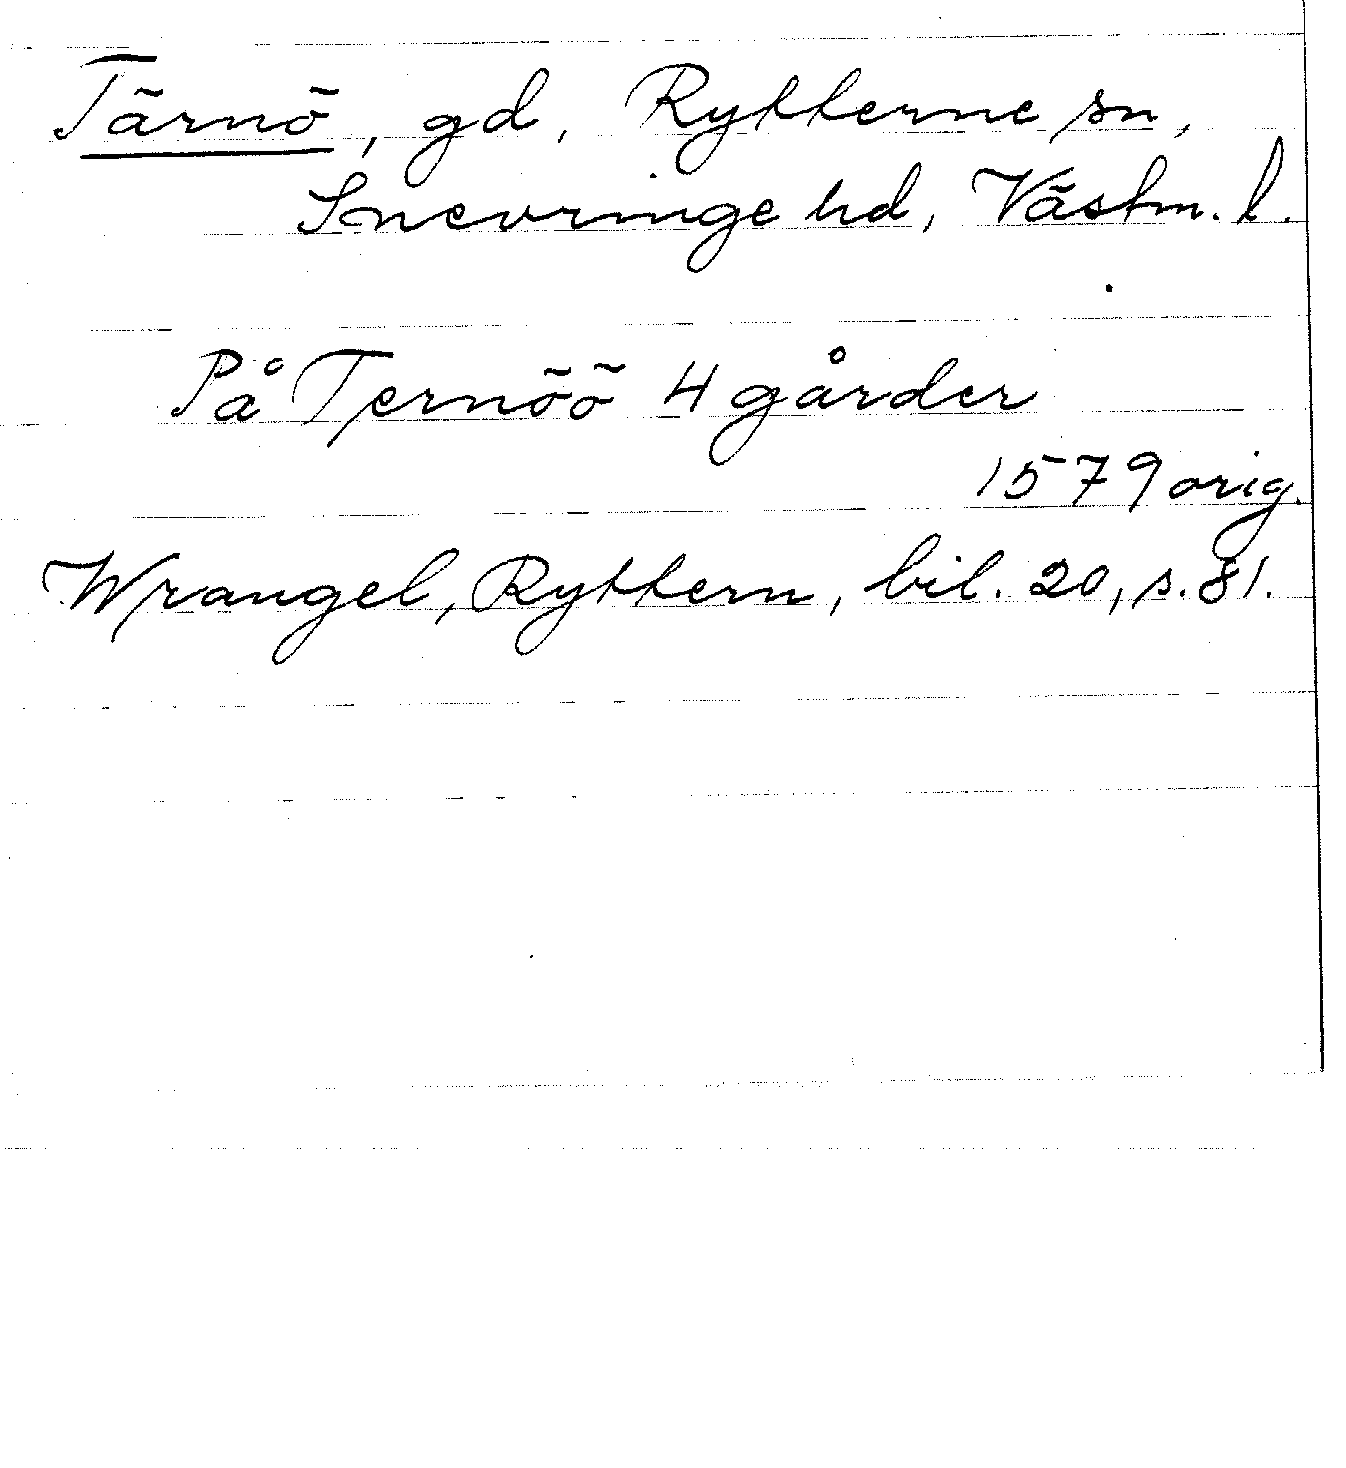 Tärnö, gd, Rytterne sn,
Snevringe hd, Västm. l.
På Ternöö 4 gårder
1579 orig.
Wrangel, Ryttern, bil. 20, s. 81.